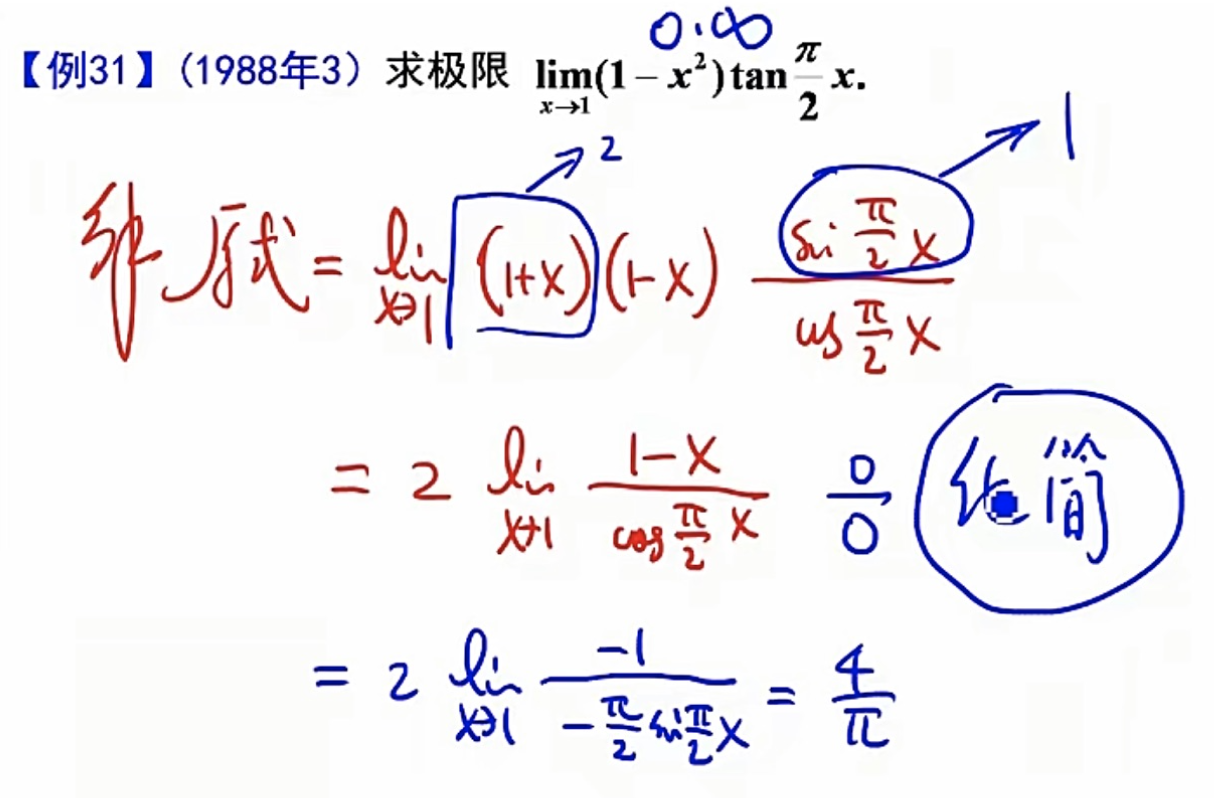 0·∞
【例31】(1988年3) 求极限 lim_{x→1}(1−x²)tan π/2 x.
→ 2 → 1
解 原式 = lim_{x→1} (1+x)(1-x) sin π/2 x / cos π/2 x
= 2 lim_{x→1} 1-x / cos π/2 x 0/0 化简
= 2 lim_{x→1} -1 / -π/2 sin π/2 x = 4/π